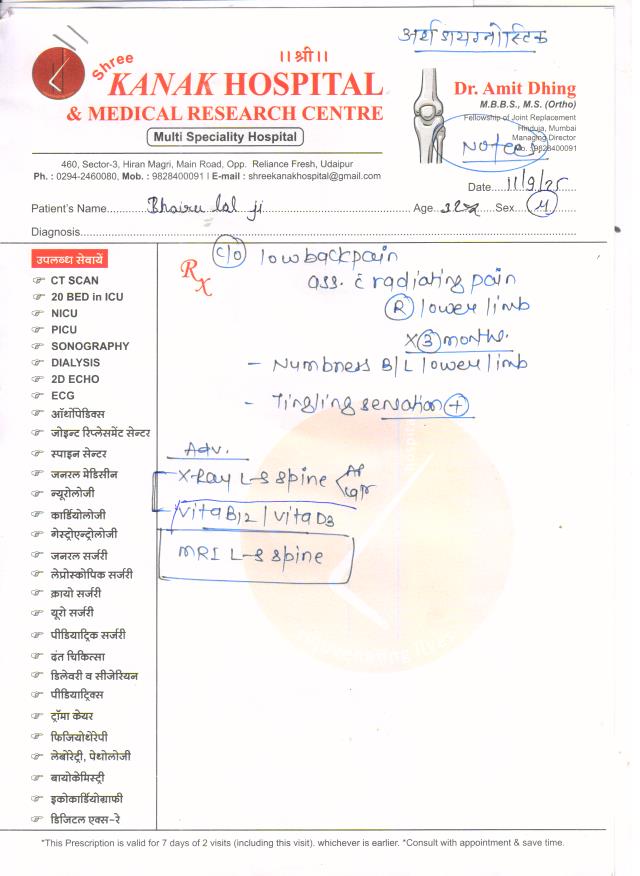 अर्थ डायग्नोस्टिक
।। श्री ।।
Shree
KANAK HOSPITAL
& MEDICAL RESEARCH CENTRE
Multi Speciality Hospital
460, Sector-3, Hiran Magri, Main Road, Opp. Reliance Fresh, Udaipur
Ph. : 0294-2460080, Mob. : 9828400091 | E-mail : shreekanakhospital@gmail.com
Dr. Amit Dhing
M.B.B.S., M.S. (Ortho)
Fellowship of Joint Replacement
Hinduja, Mumbai
Managing Director
9828400091
Date 11/9/25
Patient's Name Bhairu lal ji Age 32 Sex M
Diagnosis
C/O low back pain
ass. c̄ radiating pain
R lower limb
X 3 months.
- Numbness B/L lower limb
- Tingling sensation +
Adv.
X-Ray L-S spine AP
Lat
Vita B12 / Vita D3
MRI L-S spine
Rx
उपलब्ध सेवायें
CT SCAN
20 BED in ICU
NICU
PICU
SONOGRAPHY
DIALYSIS
2D ECHO
ECG
ऑर्थोपेडिक्स
जोइन्ट रिप्लेसमेंट सेन्टर
स्पाइन सेन्टर
जनरल मेडिसीन
न्यूरोलोजी
कार्डियोलोजी
गेस्ट्रोएन्ट्रोलोजी
जनरल सर्जरी
लेप्रोस्कोपिक सर्जरी
क्रायो सर्जरी
यूरो सर्जरी
पीडियाट्रिक सर्जरी
दंत चिकित्सा
डिलेवरी व सीजेरियन
पीडियाट्रिक्स
ट्रॉमा केयर
फिजियोथेरेपी
लेबोरेट्री, पेथोलोजी
बायोकेमिस्ट्री
इकोकार्डियोग्राफी
डिजिटल एक्स-रे
rejuvenating lives
*This Prescription is valid for 7 days of 2 visits (including this visit). whichever is earlier. *Consult with appointment & save time.